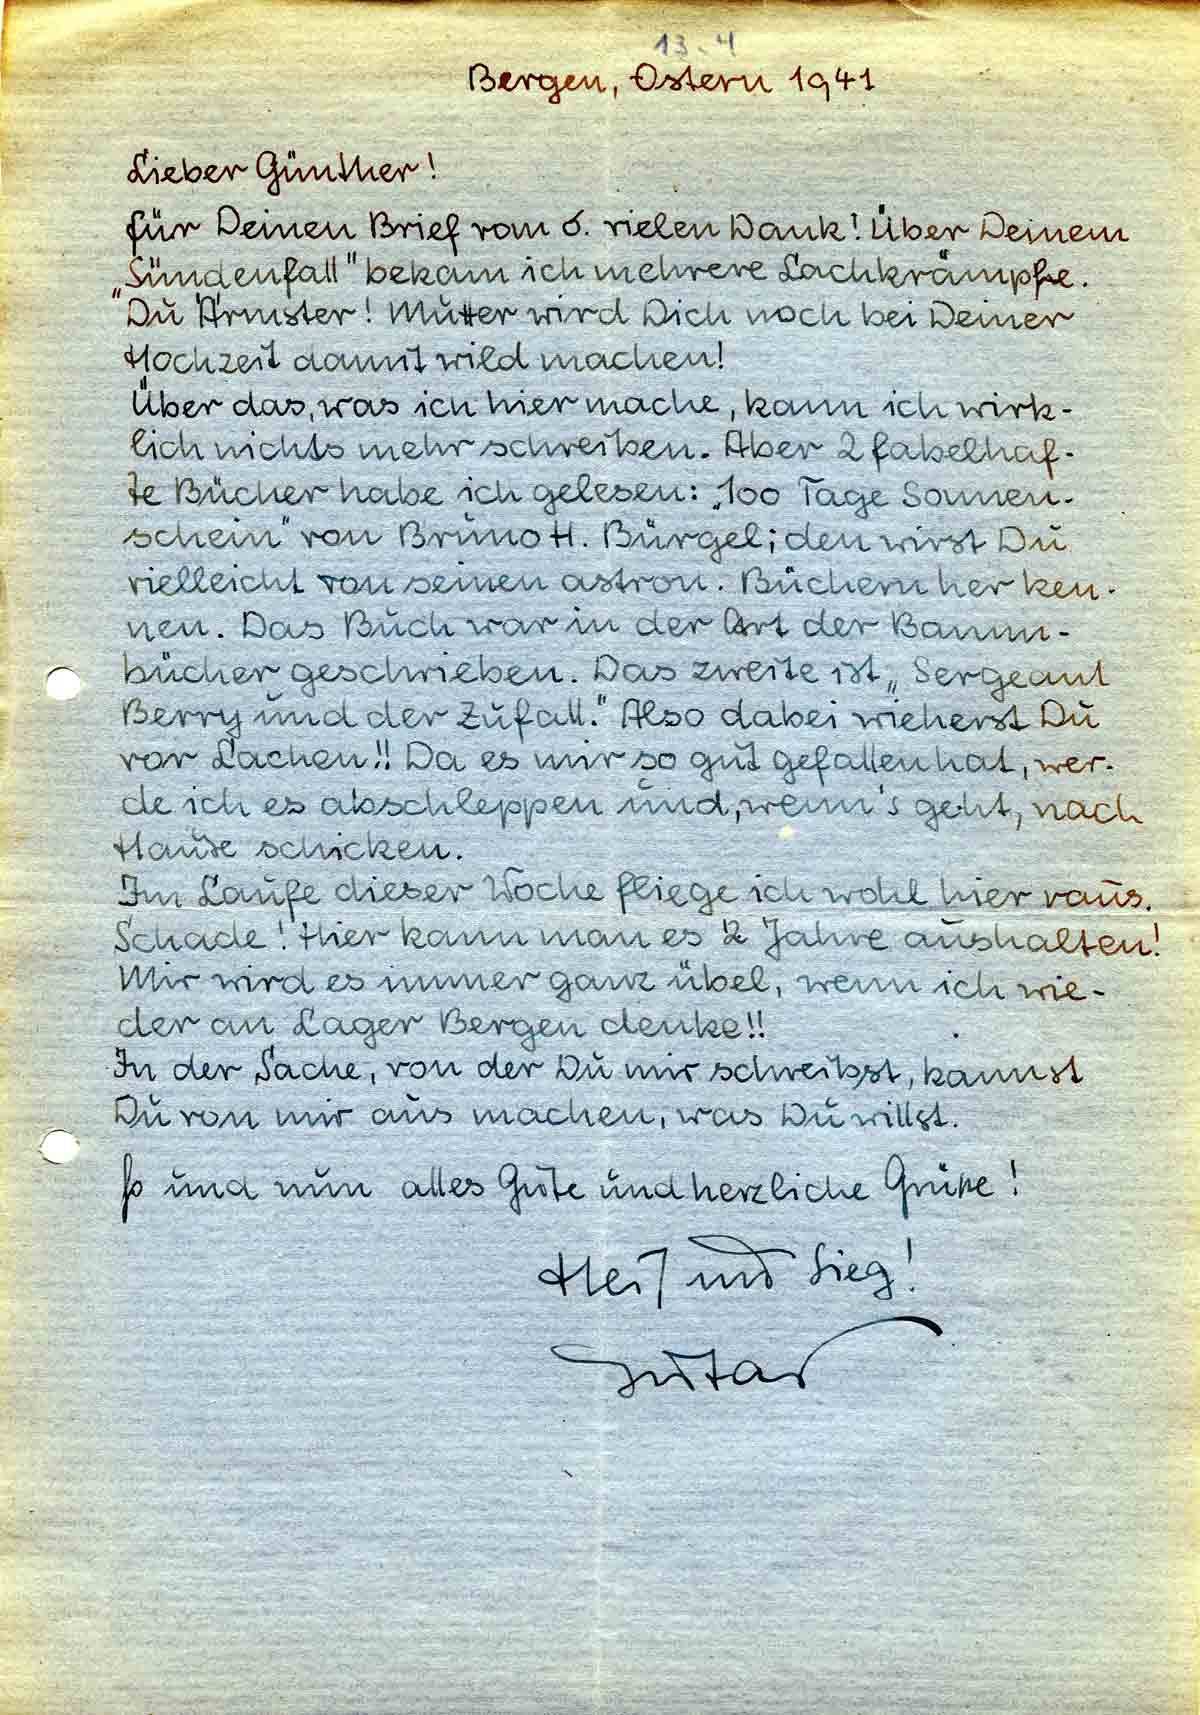 13.4
Bergen, Ostern 1941
Lieber Günther!
für Deinen Brief vom 6. vielen Dank! Über Deinem
„Sündenfall" bekam ich mehrere Lachkrämpfe.
Du Ärmster! Mutter wird Dich noch bei Deiner
Hochzeit damit wild machen!
Über das, was ich hier mache, kann ich wirk-
lich nichts mehr schreiben. Aber 2 fabelhaf-
te Bücher habe ich gelesen: „100 Tage Sonnen-
schein" von Bruno H. Bürgel; den wirst Du
vielleicht von seinen astron. Büchern her ken-
nen. Das Buch war in der Art der Bamm-
bücher geschrieben. Das zweite ist „Sergeant
Berry und der Zufall." Also dabei wieherst Du
vor Lachen!! Da es mir so gut gefallen hat, wer-
de ich es abschleppen und, wenn's geht, nach
Hause schicken.
Im Laufe dieser Woche fliege ich wohl hier raus.
Schade! Hier kann man es 2 Jahre aushalten!
Mir wird es immer ganz übel, wenn ich wie-
der an Lager Bergen denke!!
In der Sache, von der Du mir schreibst, kannst
Du von mir aus machen, was Du willst.
So und nun alles Gute und herzliche Grüße!
Heil und Sieg!